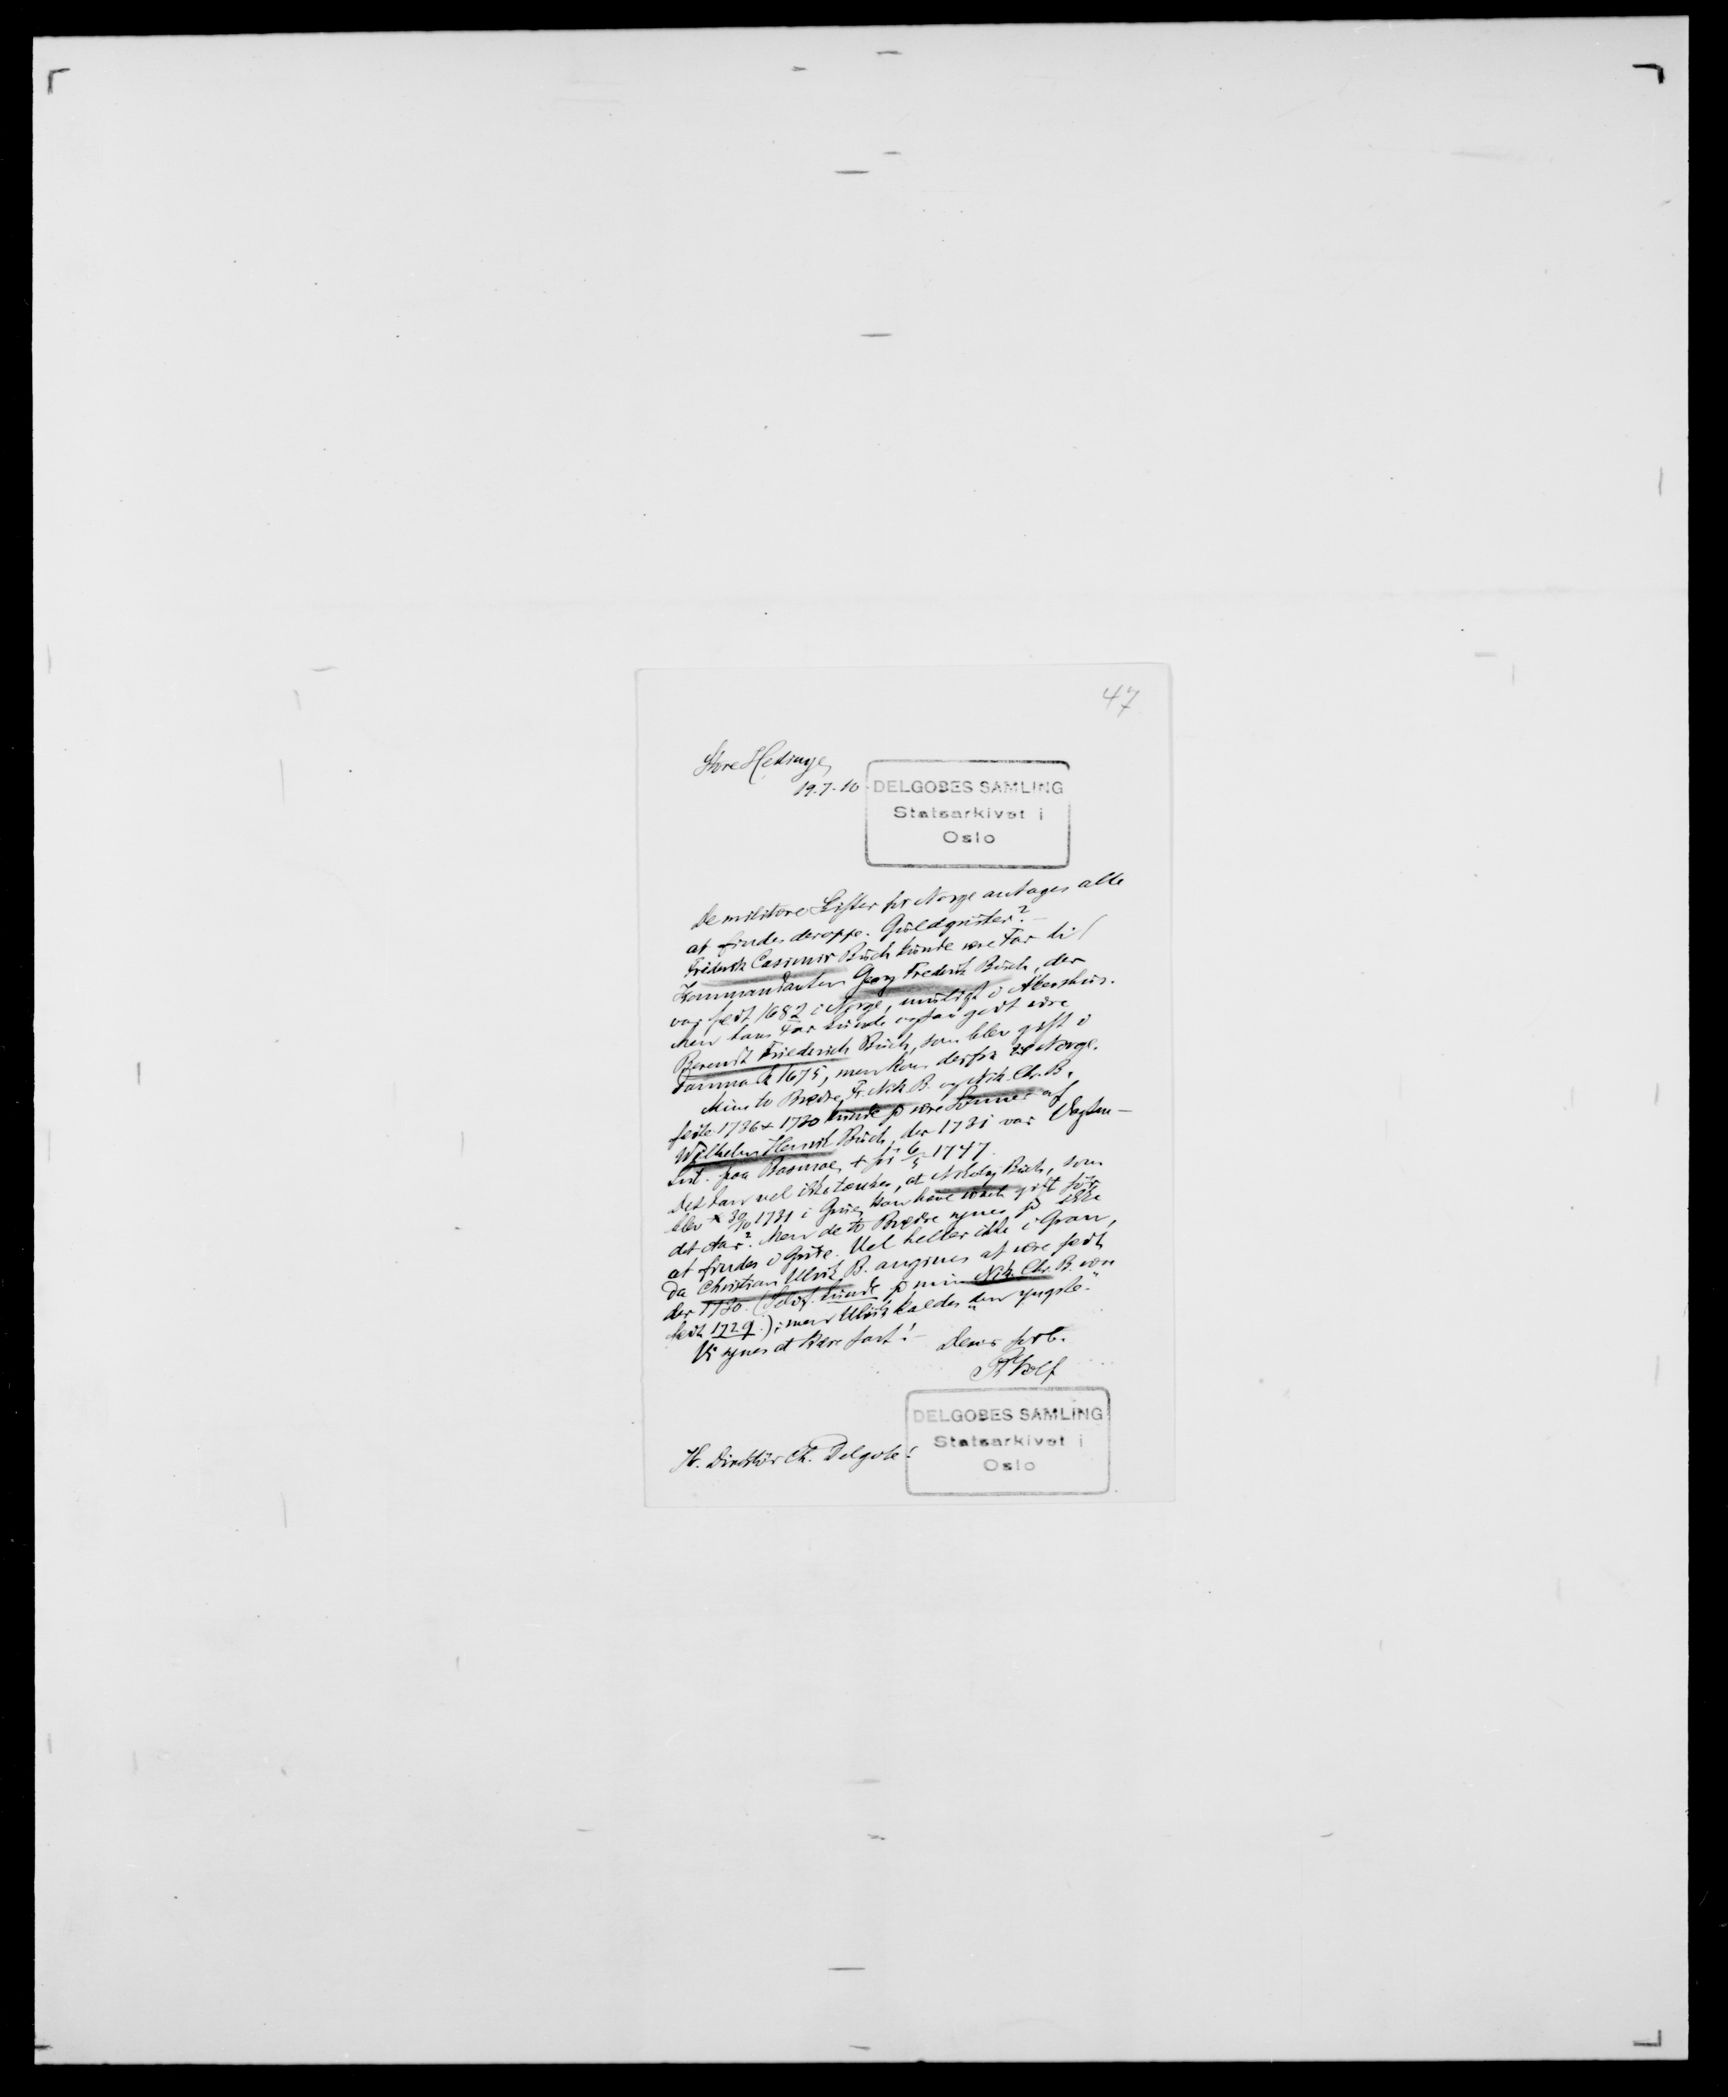 47
Store Hedinge,
19.7.10
DELGOBES SAMLING
Statsarkivet i
Oslo
De militære Lister for Norge antages alle
at findes deroppe.
Friderik Casimir Büch kunde være Far til
Kommandanten Georg Frederik Büch, der
var født 1682 i Norge, muligt i Akershus.
Men hans Far kunde ogsaa godt være
Berendt Friederich Büch, som blev gift i
Danmark 1675, men kom derfra til Norge.
Mine to Brødre, Fr. Nik. B. og Nik. Chr. B.
fødte 1736 + 1730 kunde jo være Sønner af
Wilhelm Henrik Büch, der 1731 var
Lieut. paa + før 6/5 1747.
Det kan vel ikke tænkes, at Nikolaj Büch, som
blev * 30/10 1731 i Grue, kan have været gift før
det Aar? Men de to Brødre synes jo ikke
at findes i Grue. Vel heller ikke i Gran,
da Christian Ulrik B. angives at være født
der 1730. (Selvf. kunde jo min Nik. Chr. B. være
født 1729.); men Ulrik kaldes "den yngste."
Vi synes at være fast! - Deres forb.
DELGOBES SAMLING
Statsarkivet i
Oslo
Hr. Direktør Ch. Delgobe!